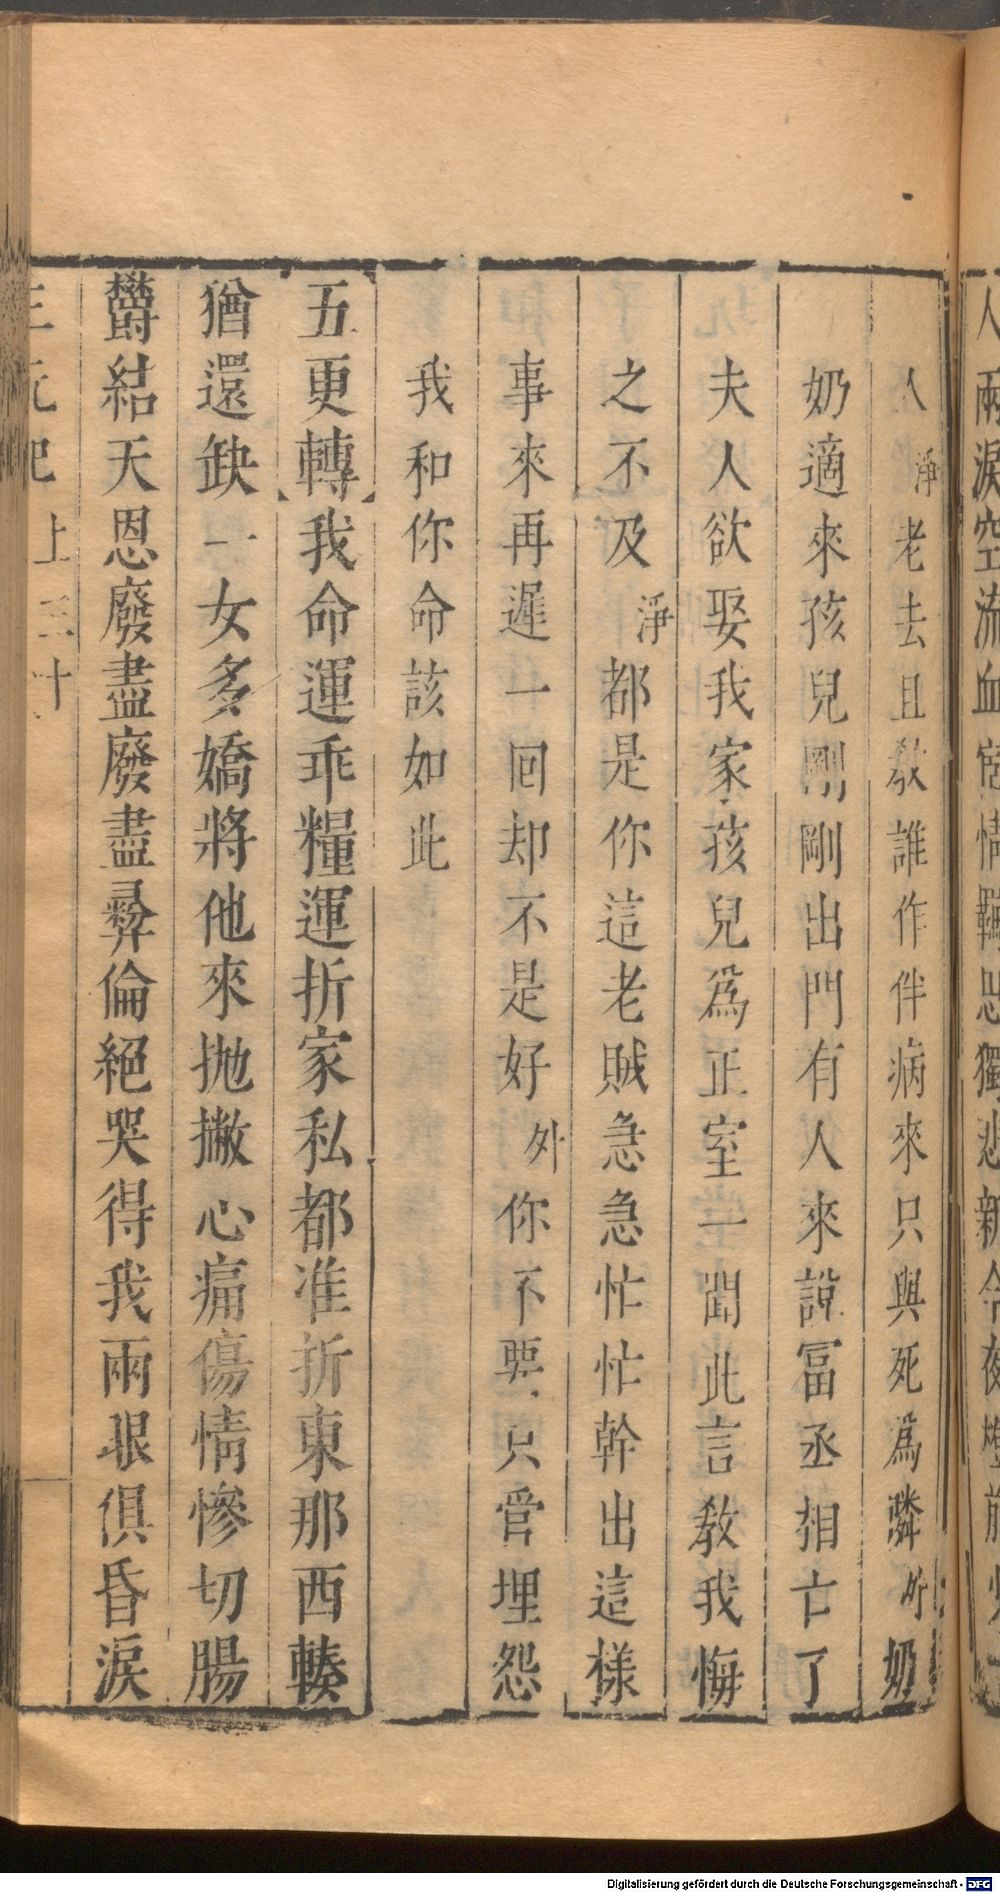 人兩淚空流血宦情羈思獨悲新今夜燈前火
人淨老去且教誰作伴病來只與死爲隣外奶
奶適來孩兒剛剛出門有人來說冨丞相亡了
夫人欲娶我家孩兒爲正室一聞此言教我悔
之不及淨都是你這老賊急急忙忙幹出這樣
事來再遲一回却不是好外你不要只管埋怨
我和你命該如此
五更轉我命運乖糧運折家私都准折東那西輳
猶還缺一女多嬌將他來拋撇心痛傷情慘切腸
欝結天恩廢盡廢盡彛倫絕哭得我兩眼俱昏淚
三元記上三十
Digitalisierung gefördert durch die Deutsche Forschungsgemeinschaft - DFG